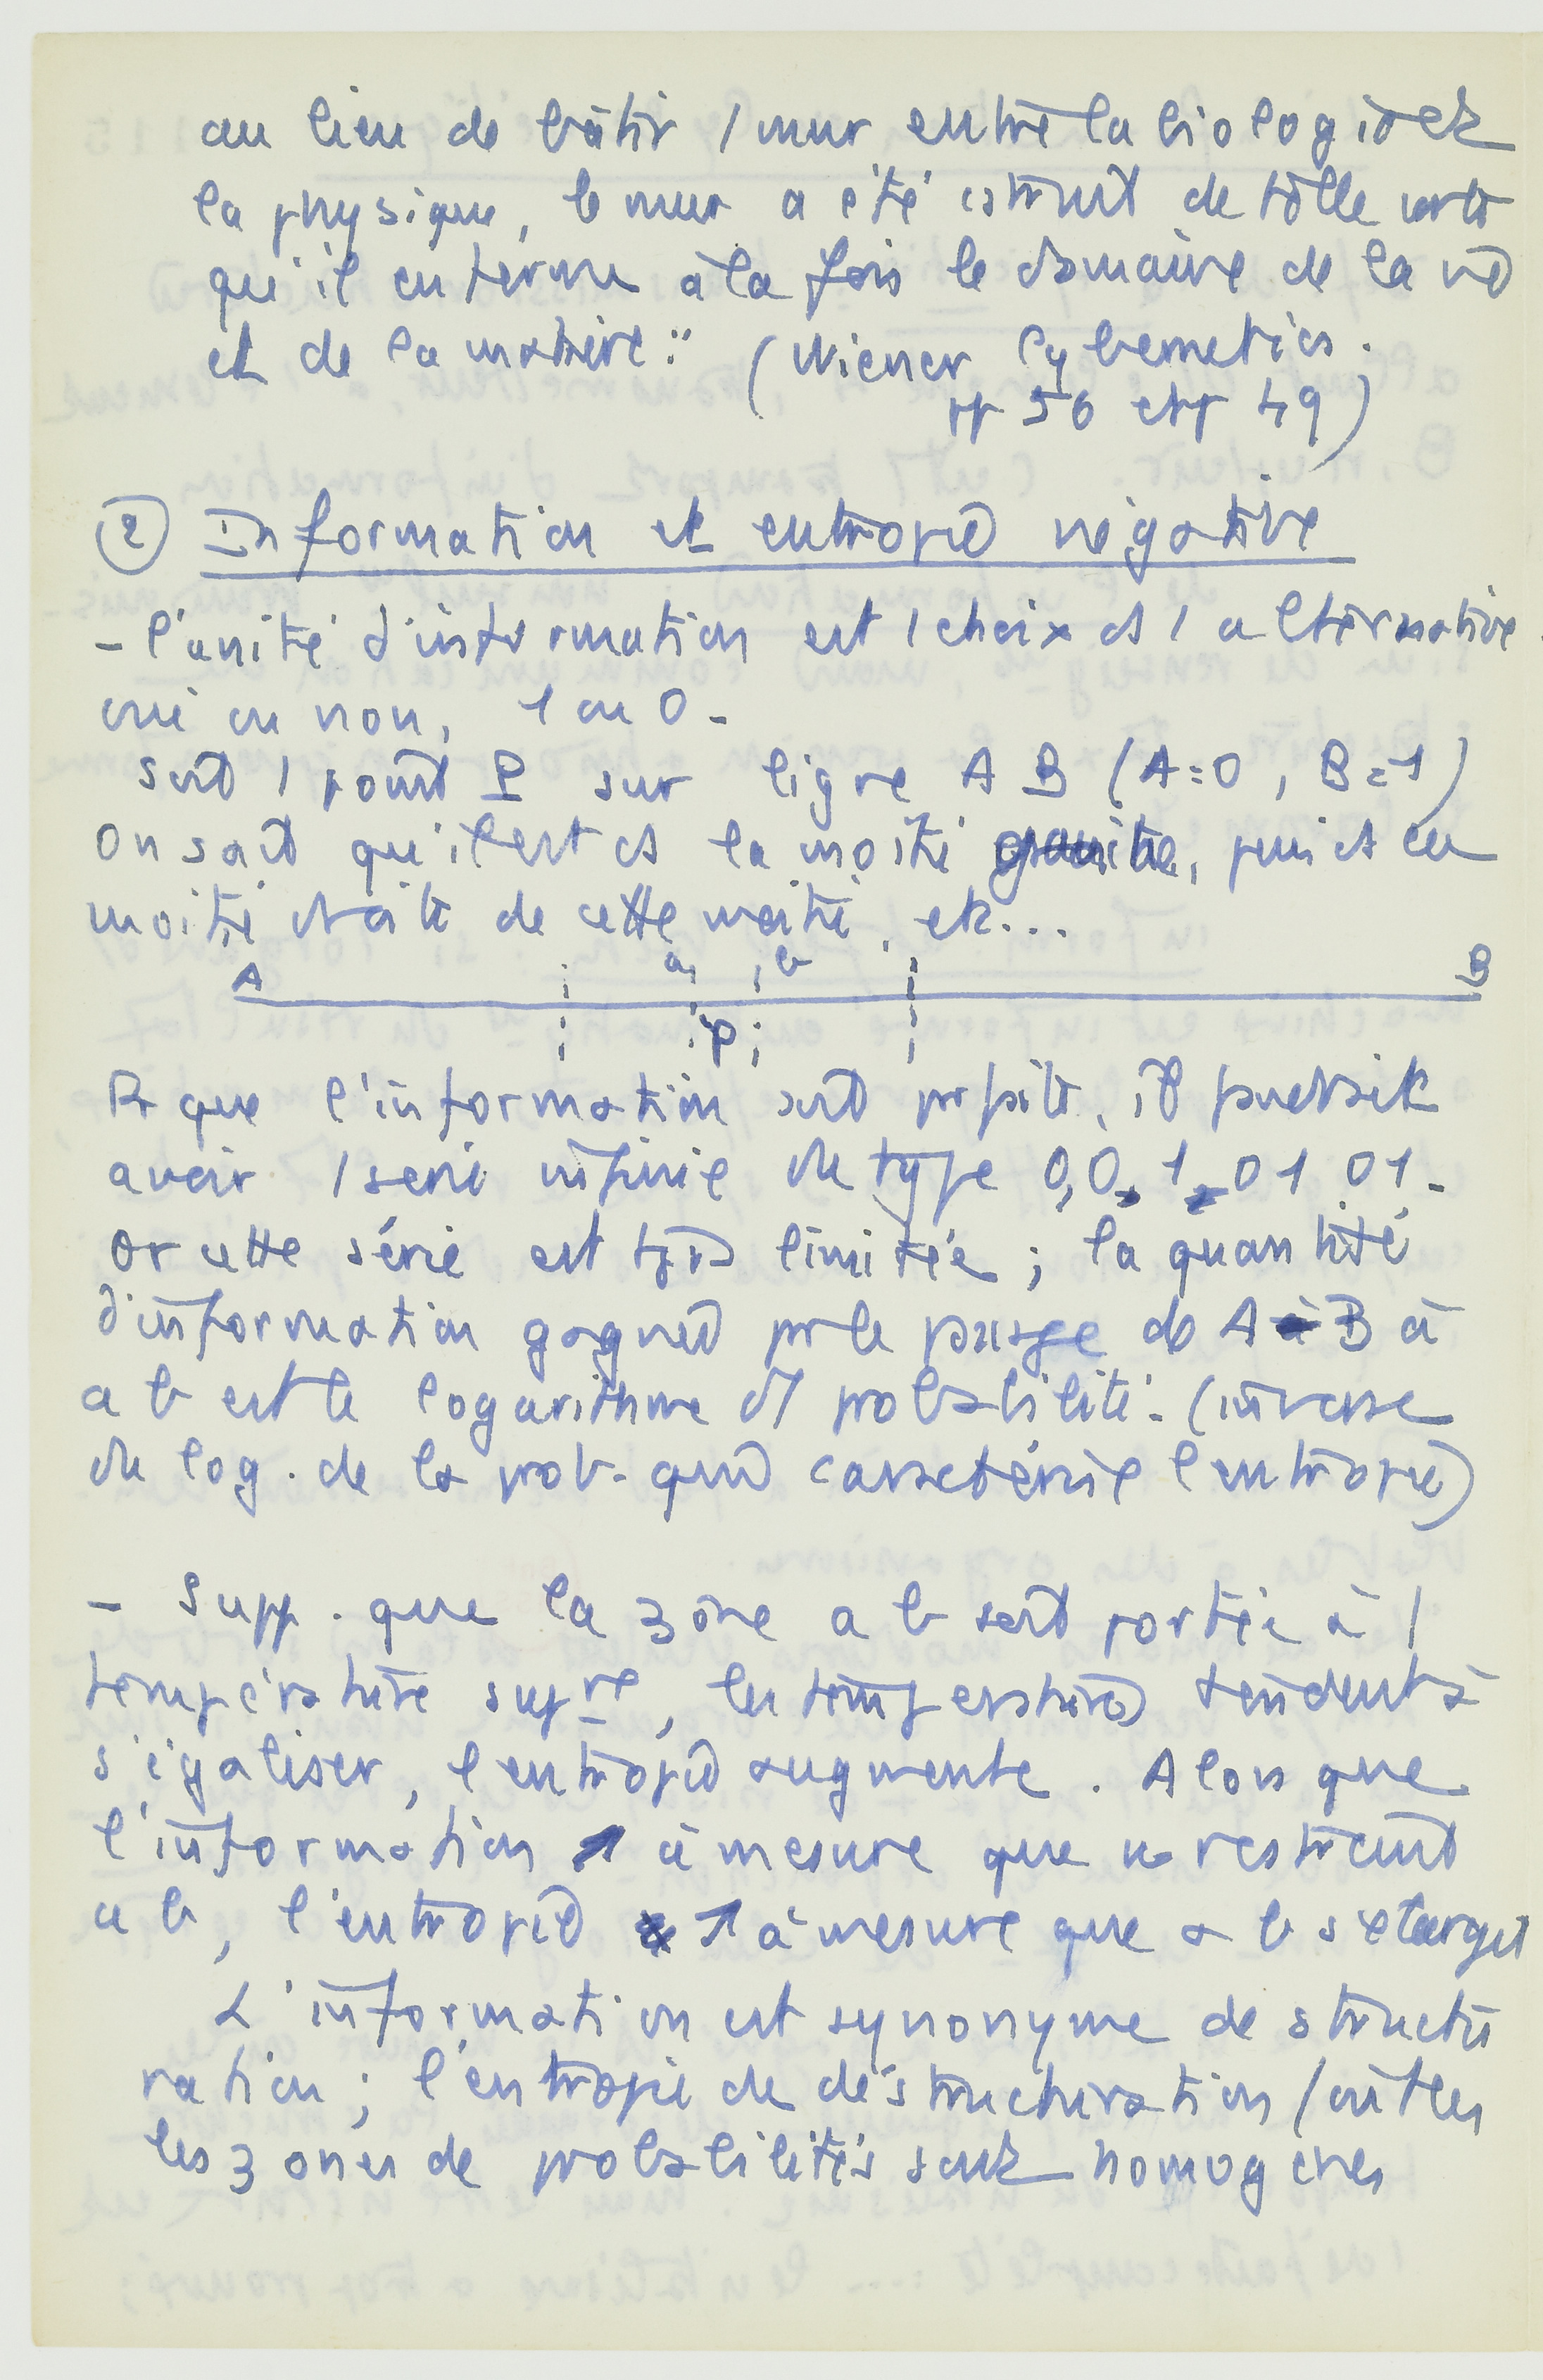 au lieu de bâtir 1 mur entre la biologie et
la physique, le mur a été cstruit de telle sorte
qu'il enferme à la fois le domaine de la vie
et de la matière." (Wiener Cybernetics.
pp 50 et p 49)
② Information et entropie négative
- l'unité d'information est 1 choix ds 1 alternative
oui ou non, 1 ou 0 -
Soit 1 point P sur ligne A B (A=0, B=1)
On sait qu'il est ds la moitié gauche, puis ds la
moitié droite de cette moitié, etc...
A a b B
P
Pr que l'information soit parfaite, il faudrait
avoir 1 série infinie du type 0,0,1,01 01 -
Or cette série est tjrs limitée ; la quantité
d'information gagnée pr le passage de A B à
a b est le logarithme d'1 probabilité. (inverse
du log. de la prob. qui caractérise l'entropie)
- Supp. que la zone a b soit portée à 1
température supre, les températures tendent à
s'égaliser, l'entropie augmente. Alors que
l'information ↗ à mesure que se restreint
a b, l'entropie ↗ à mesure que a b s'élargit
L'information est synonyme de structu
ration ; l'entropie de déstructuration (où ttes
les zones de probabilités sont homogènes